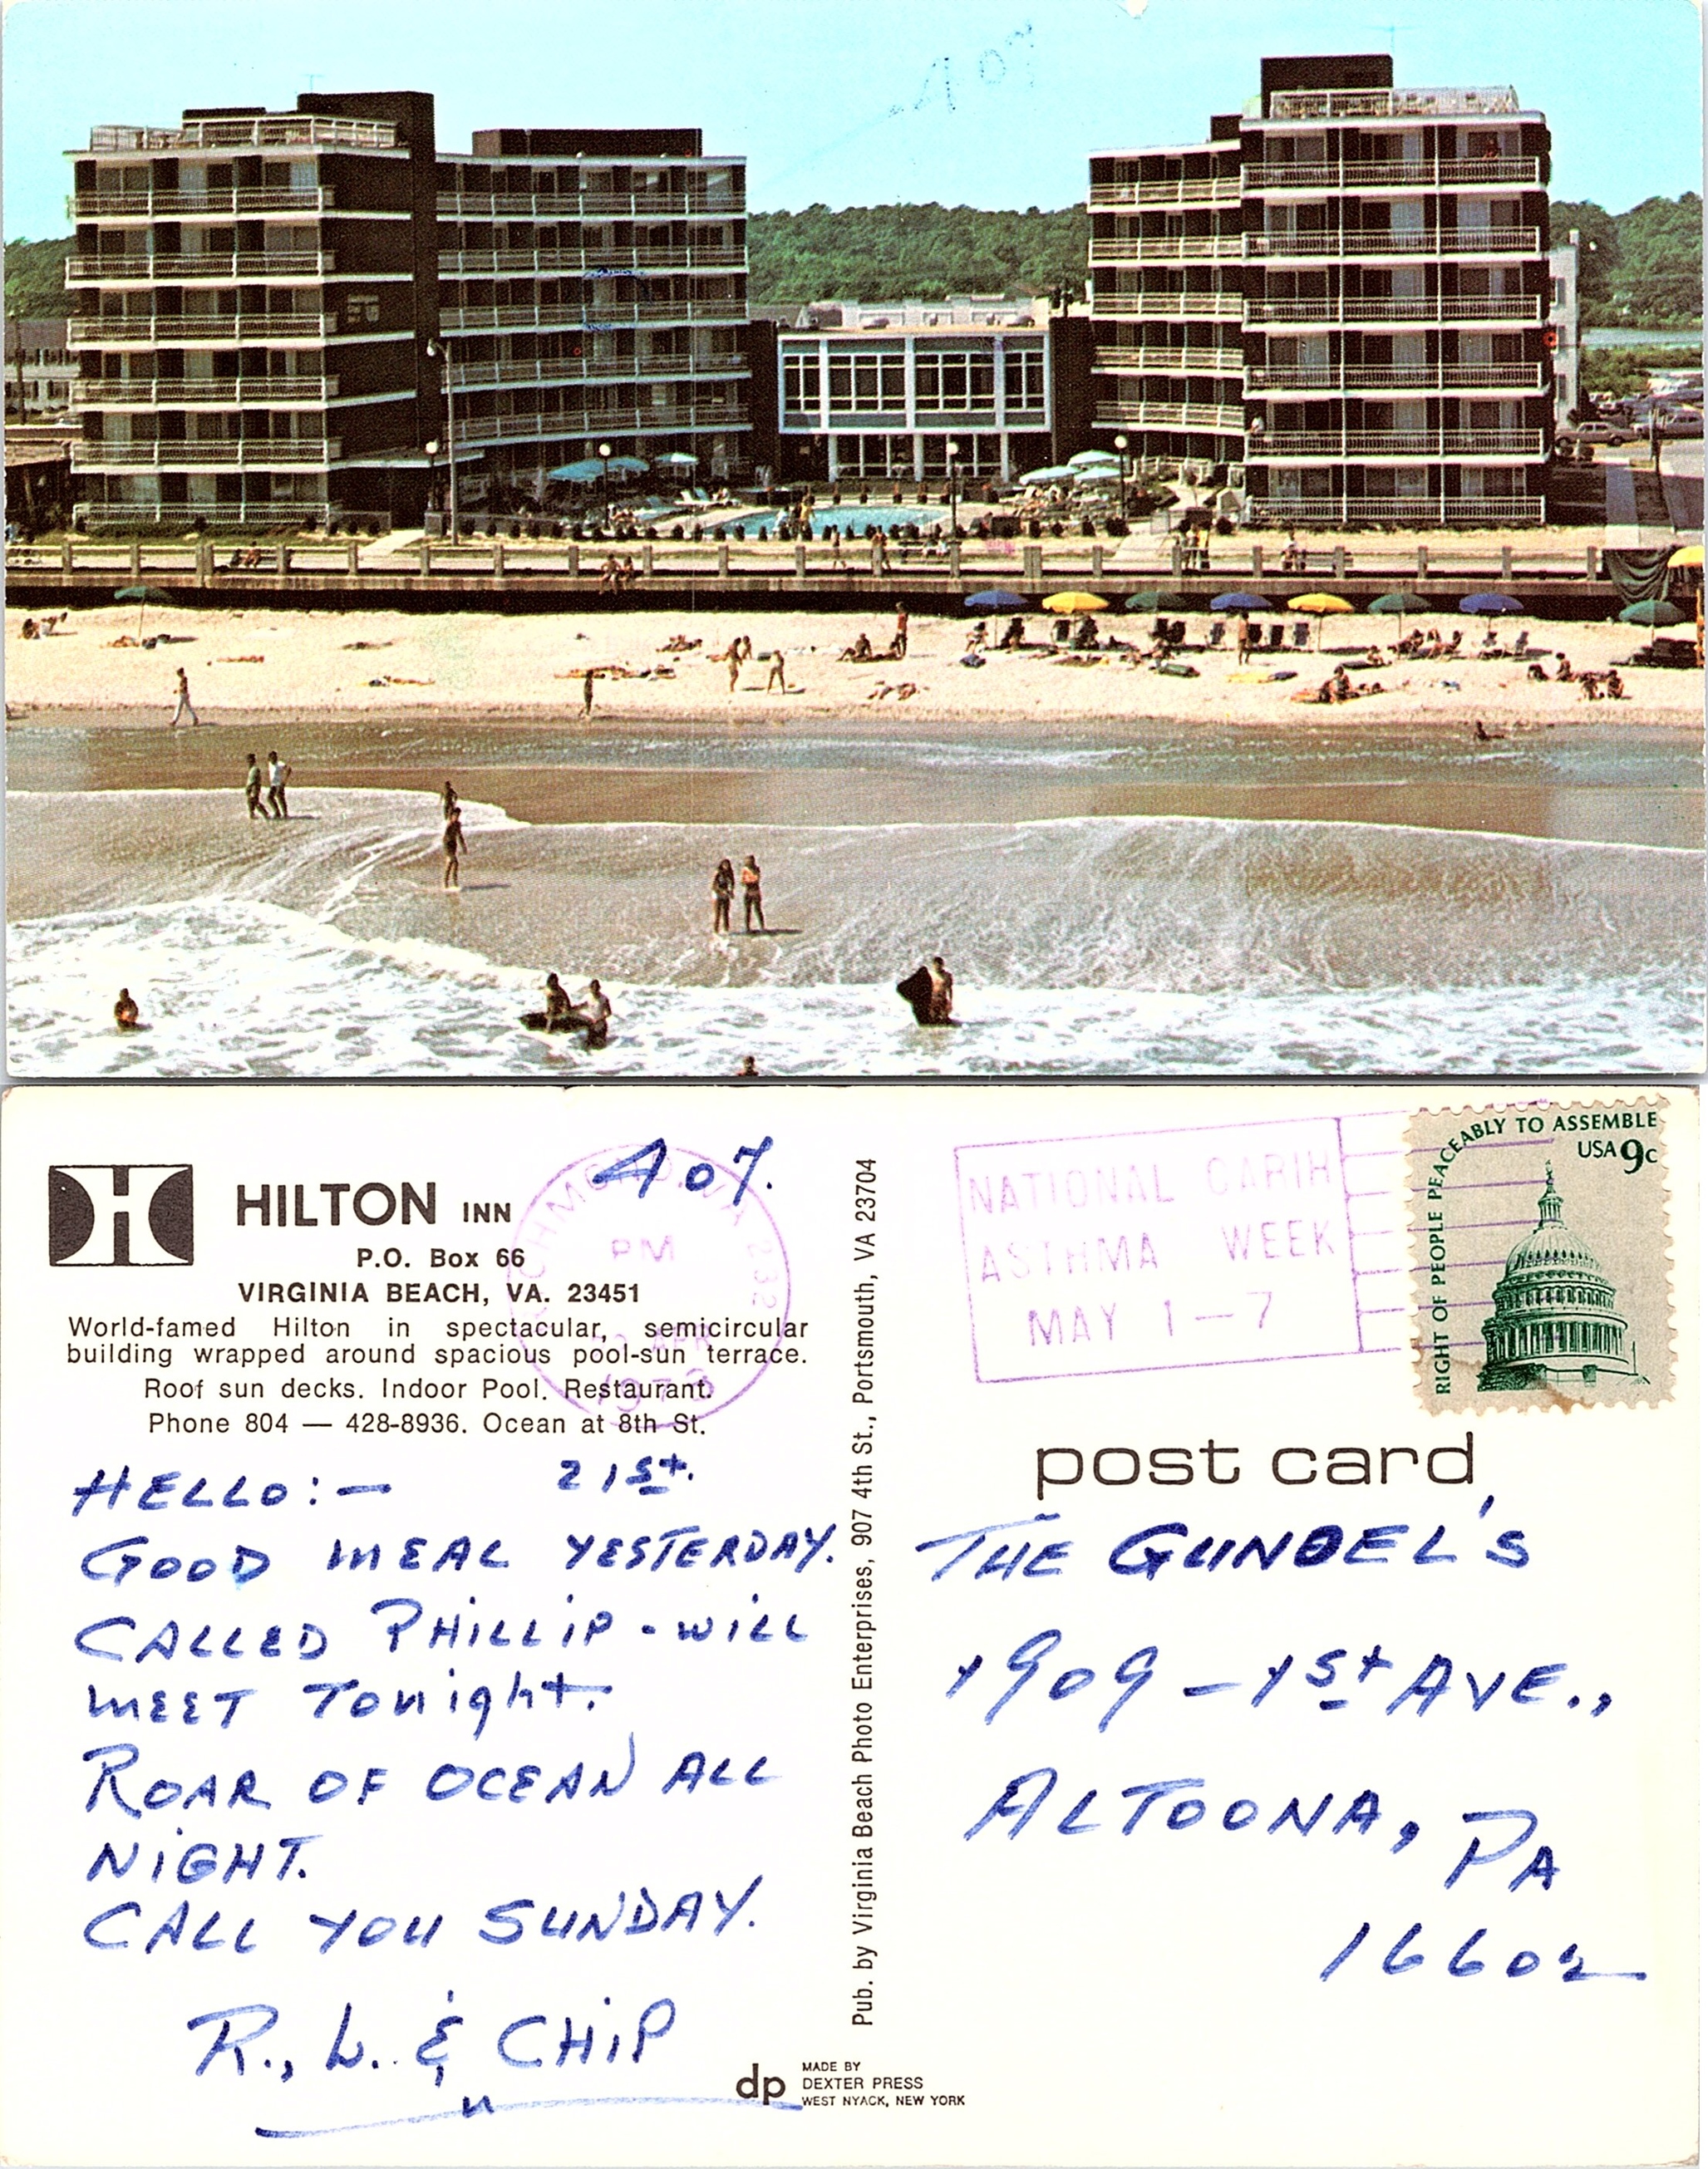 407
HILTON INN
P.O. Box 66
VIRGINIA BEACH, VA. 23451
World-famed Hilton in spectacular, semicircular
building wrapped around spacious pool-sun terrace.
Roof sun decks. Indoor Pool. Restaurant.
Phone 804 — 428-8936. Ocean at 8th St.
407.
PM
APR
HELLO:— 21st.
GOOD MEAL YESTERDAY.
CALLED PHILLIP - WILL
MEET TONight.
ROAR OF OCEAN ALL
NiGHT.
CALL YOU SUNDAY.
R., L. & CHiP
Pub. by Virginia Beach Photo Enterprises, 907 4th St., Portsmouth, VA 23704
dp
MADE BY
DEXTER PRESS
WEST NYACK, NEW YORK
NATIONAL CARIH
ASTHMA WEEK
MAY 1—7
RIGHT OF PEOPLE PEACEABLY TO ASSEMBLE
USA 9c
post card
THE GUNDEL'S
1909 – 1st AVE.,
ALTOONA, PA
16602